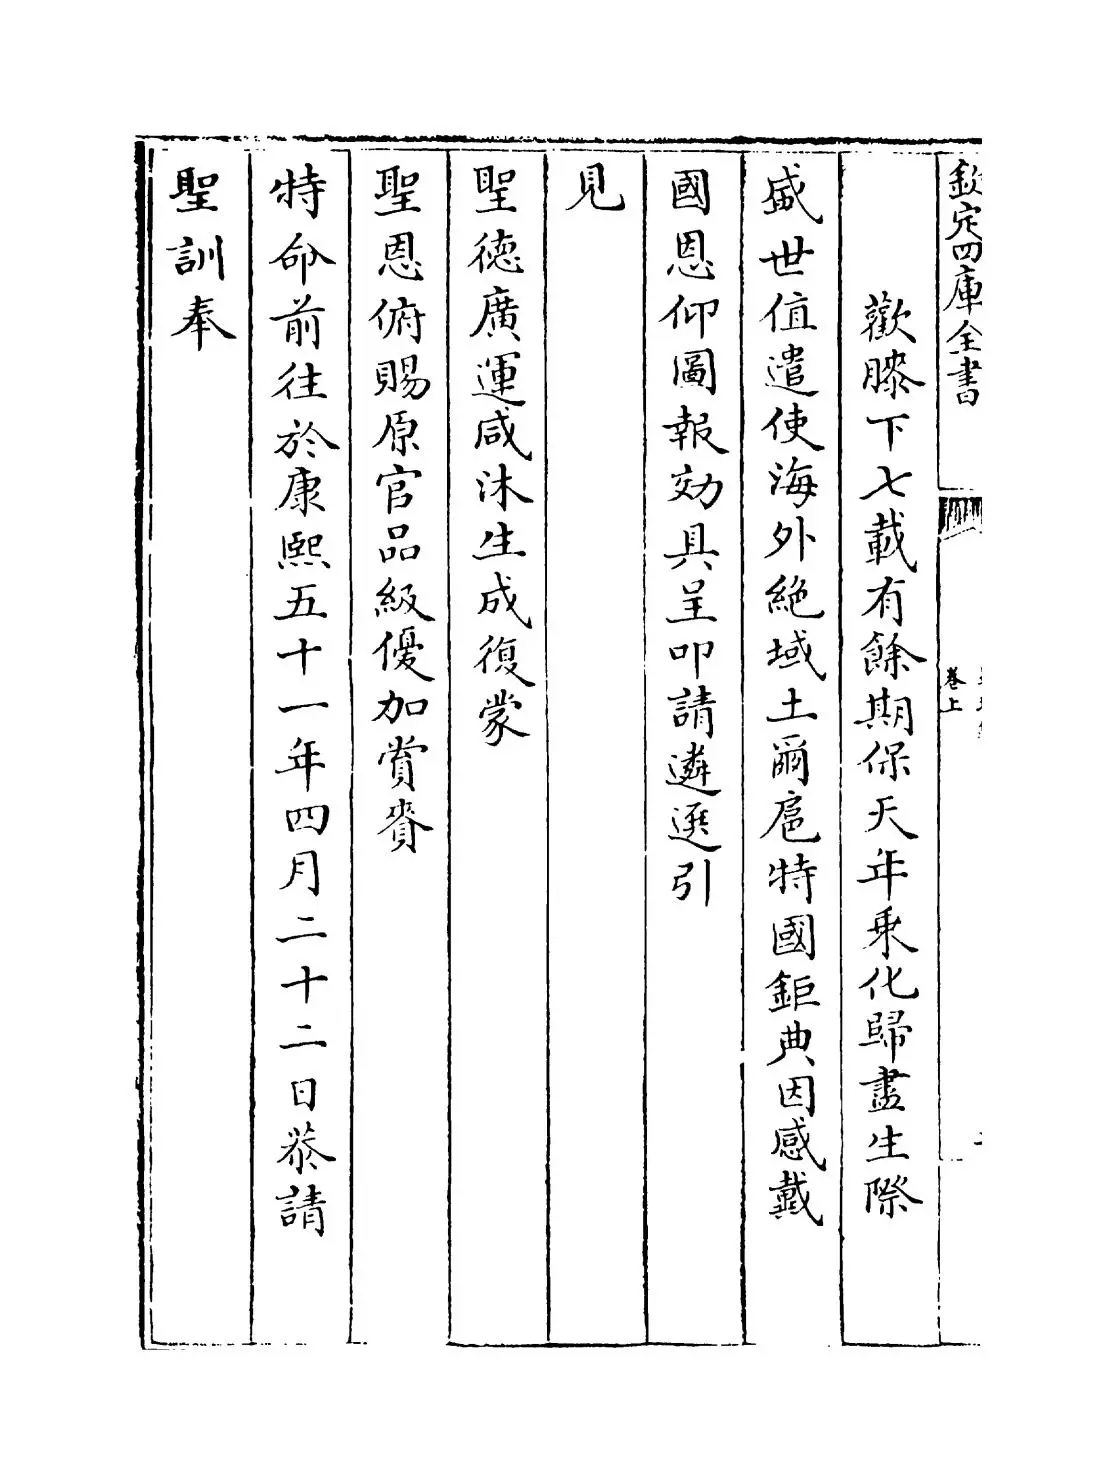 欽定四庫全書
卷上
歡膝下七載有餘期保天年乘化歸盡生際
盛世值遣使海外絶域土爾扈特國鉅典因感戴
國恩仰圖報効具呈叩請遴選引
見
聖德廣運咸沐生成復蒙
聖恩俯賜原官品級優加賞賚
特命前往於康熙五十一年四月二十二日恭請
聖訓奉